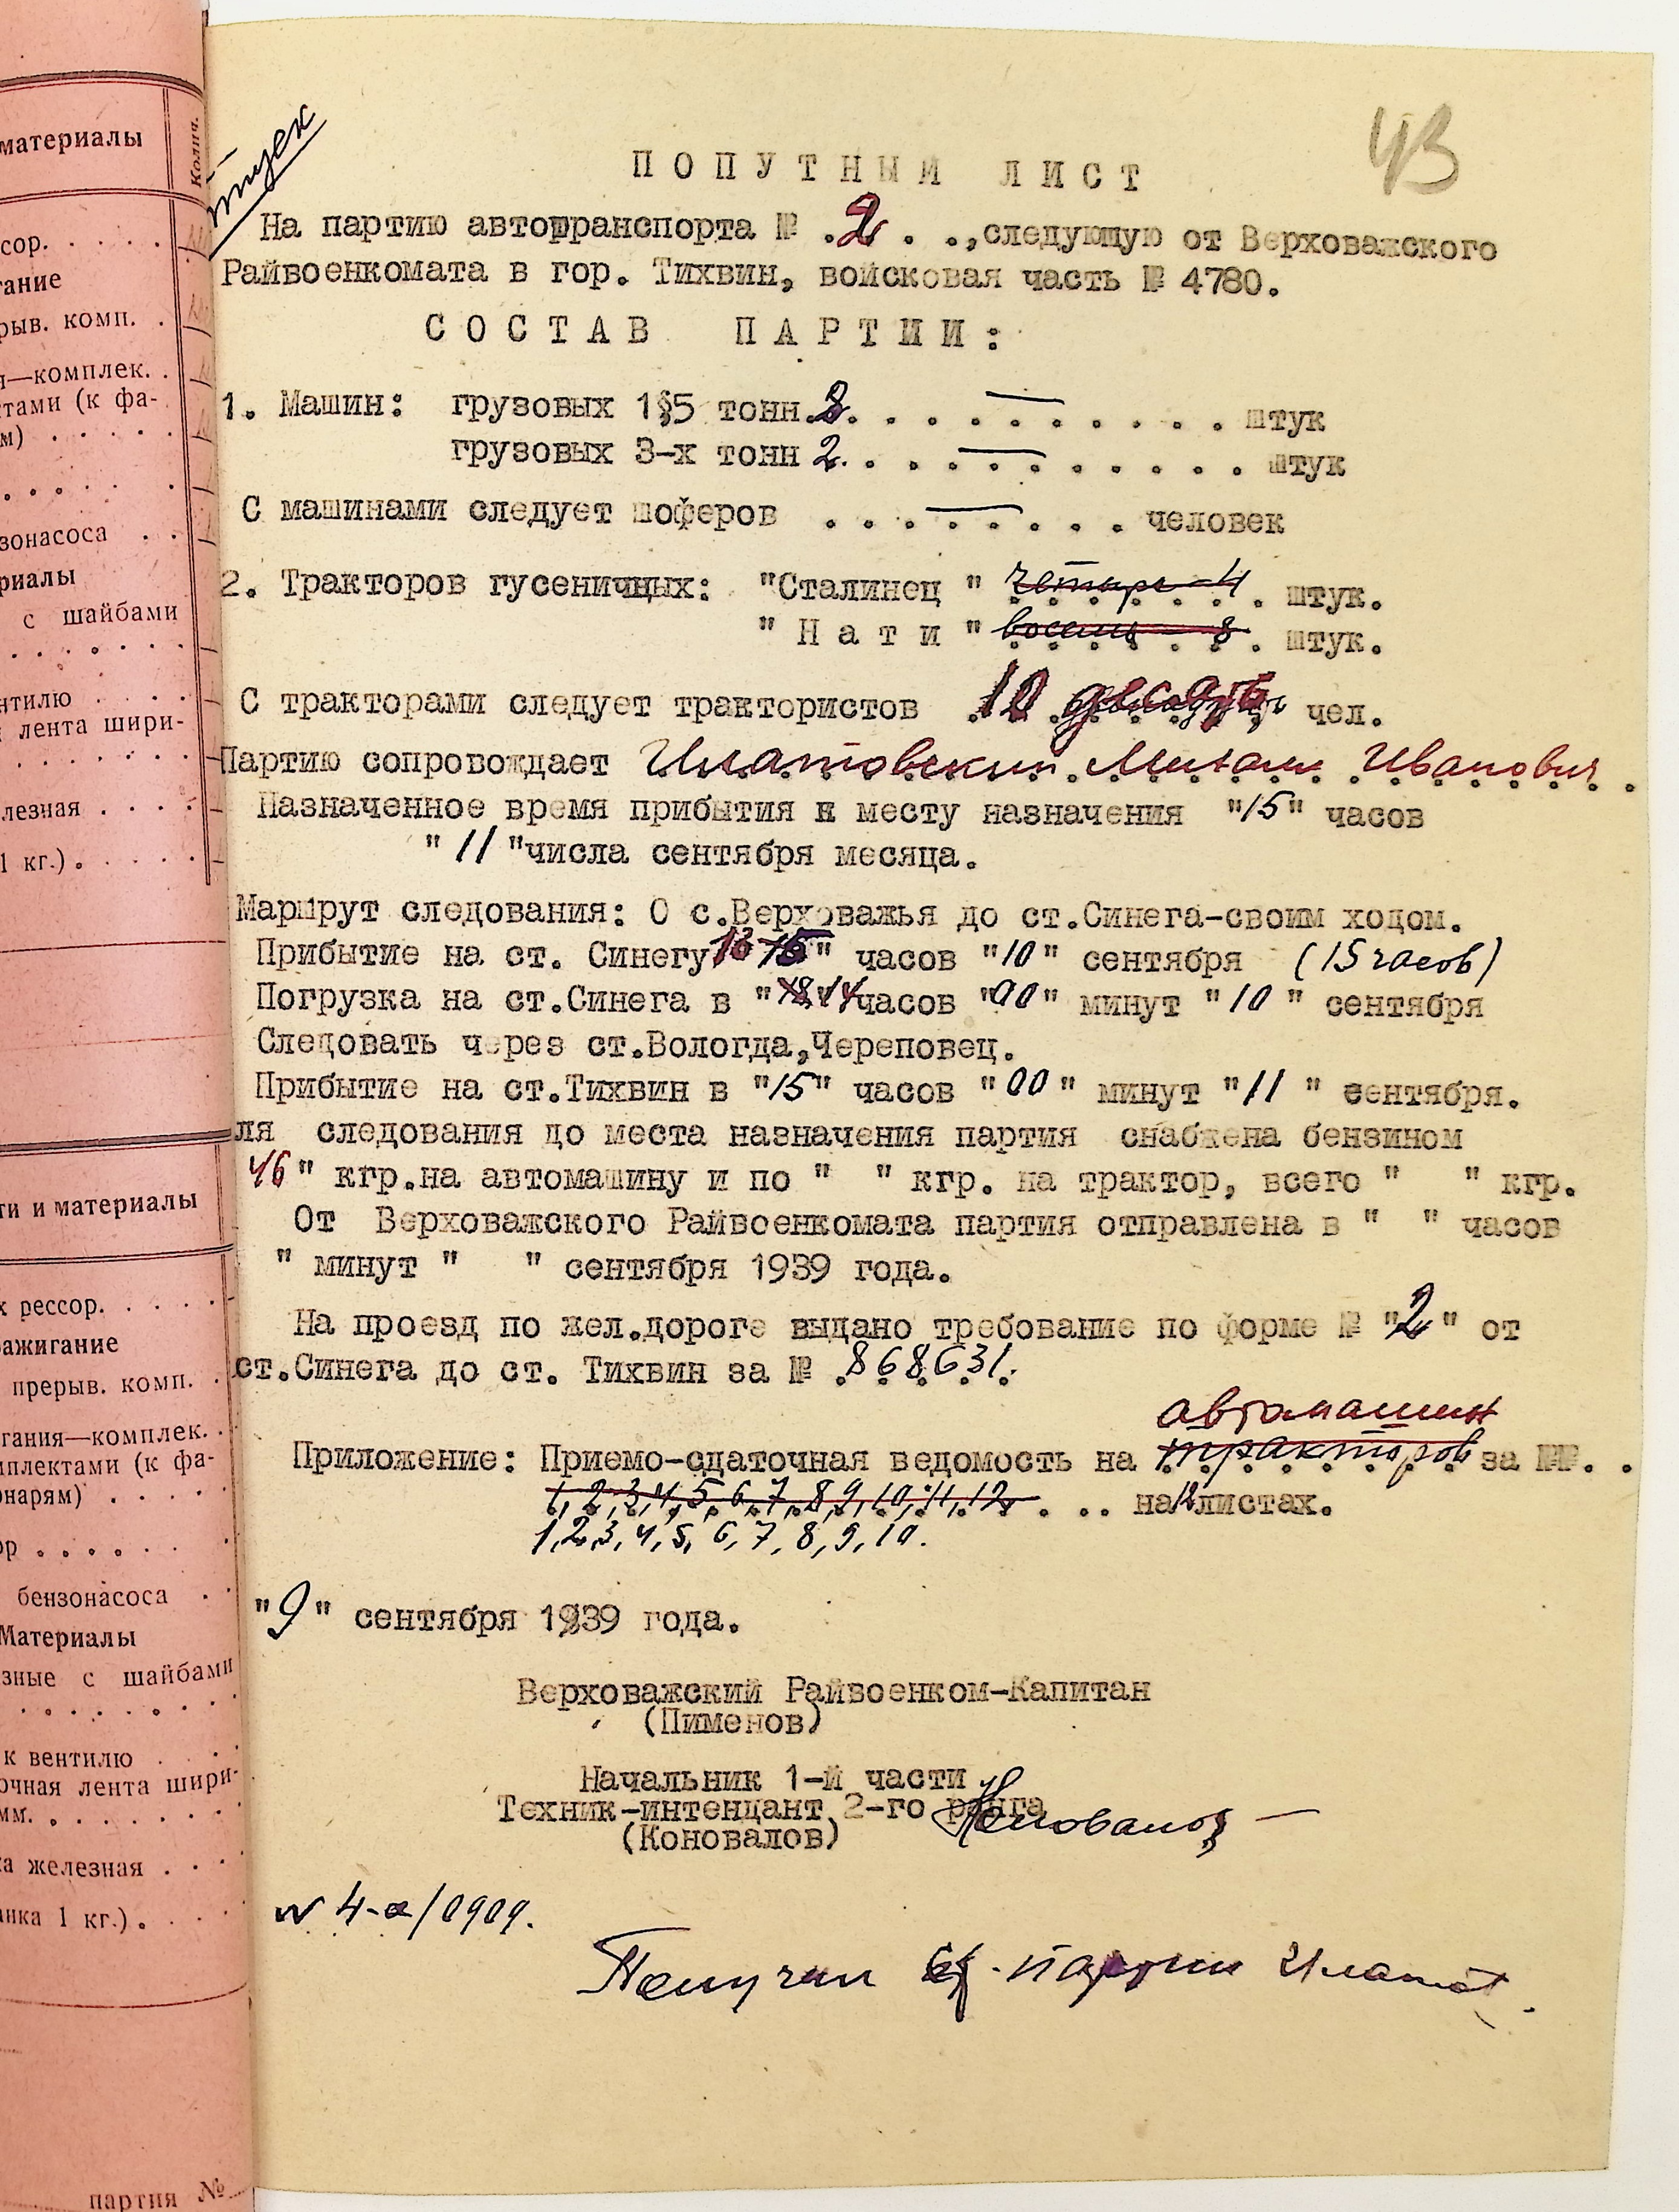 материалы
Колич.
сор. . . . .
гание
рыв. комп. .
я—комплек. .
стами (к фа-
м) . . . . .
зонасоса . .
риалы
с шайбами
нтилю . . . .
лента шири-
лезная . . . .
1 кг.). . . . .
ти и материалы
х рессор. . . . .
ажигание
прерыв. комп. .
гания—комплек. .
мплектами (к фа-
онарям) . . . .
ор . . . . . .
бензонасоса . .
Материалы
зные с шайбами
к вентилю . . . .
очная лента шири-
мм. . . . . . . .
ка железная . . . .
анка 1 кг.). . . . .
партия №
43
ПОПУТНЫЙ ЛИСТ
На партию автотранспорта № . 2 . . ., следующую от Верховажского
Райвоенкомата в гор. Тихвин, войсковая часть № 4780.
СОСТАВ ПАРТИИ:
1. Машин: грузовых 1,5 тонн 8. . . . — . . . . . . штук
грузовых 3-х тонн 2. . . . — . . . . . . штук
С машинами следует шоферов . . . — . . . . человек
2. Тракторов гусеничных: "Сталинец " четыре - 4 . штук.
" Н а т и " восемь — 8 . штук.
С тракторами следует трактористов 10 десять чел.
Партию сопровождает Игнатовский Михаил Иванович .
Назначенное время прибытия к месту назначения "15" часов
" 11 "числа сентября месяца.
Маршрут следования: О с.Верховажья до ст.Синега-своим ходом.
Прибытие на ст. Синегу 13 15" часов "10" сентября (15 часов)
Погрузка на ст.Синега в "18 14 часов "00" минут "10 " сентября
Следовать через ст.Вологда,Череповец.
Прибытие на ст.Тихвин в "15" часов "00" минут "11 " сентября.
ля следования до места назначения партия снабжена бензином
46" кгр.на автомашину и по " " кгр. на трактор, всего " " кгр.
От Верховажского Райвоенкомата партия отправлена в " " часов
" минут " " сентября 1939 года.
На проезд по жел.дороге выдано требование по форме № "2" от
ст.Синега до ст. Тихвин за № 868631.
автомашин
Приложение: Приемо-сдаточная ведомость на тракторов за №№. .
1,2,3,4,5,6,7,8,9,10,11,12. . . . на 12 листах.
1,2,3,4,5,6,7,8,9,10.
"9" сентября 1939 года.
Верховажский Райвоенком-Капитан
(Пименов)
Начальник 1-й части
Техник-интендант 2-го ранга
(Коновалов) Коновалов
№ 4-а/0909.
Получил партии